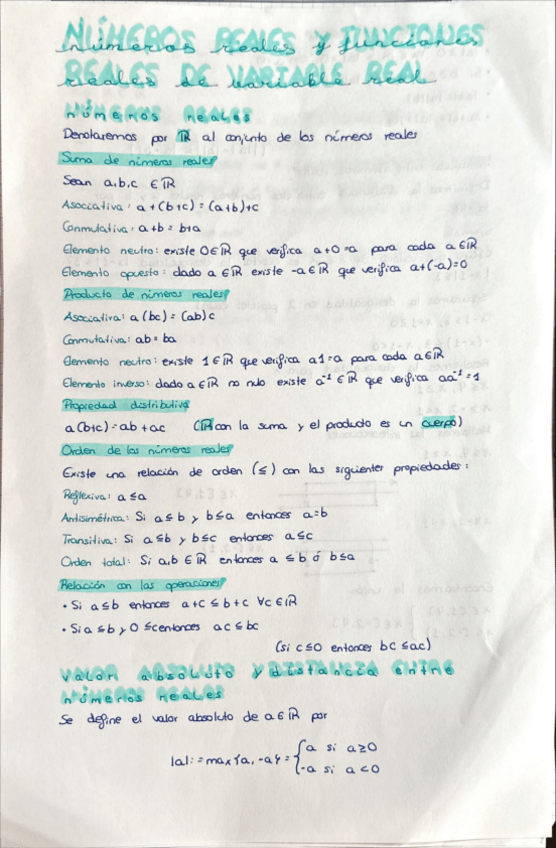 Números reales y funciones
reales de variable real
números reales
Denotaremos por ℝ al conjunto de los números reales
Suma de números reales
Sean a,b,c ∈ ℝ
Asociativa: a+(b+c) = (a+b)+c
Conmutativa: a+b = b+a
Elemento neutro: existe 0∈ℝ que verifica a+0=a para cada a∈ℝ
Elemento opuesto: dado a∈ℝ existe -a∈ℝ que verifica a+(-a)=0
Producto de números reales
Asociativa: a(bc) = (ab)c
Conmutativa: ab = ba
Elemento neutro: existe 1∈ℝ que verifica a1=a para cada a∈ℝ
Elemento inverso: dado a∈ℝ no nulo existe a⁻¹∈ℝ que verifica aa⁻¹=1
Propiedad distributiva
a(b+c) = ab+ac (ℝ con la suma y el producto es un cuerpo)
Orden de los números reales
Existe una relación de orden (≤) con las siguientes propiedades:
Reflexiva: a≤a
Antisimétrica: Si a≤b y b≤a entonces a=b
Transitiva: Si a≤b y b≤c entonces a≤c
Orden total: Si a,b ∈ ℝ entonces a≤b ó b≤a
Relación con las operaciones
• Si a≤b entonces a+c ≤ b+c ∀c∈ℝ
• Si a≤b y 0≤c entonces ac≤bc
(si c≤0 entonces bc≤ac)
Valor absoluto y distancia entre
números reales
Se define el valor absoluto de a∈ℝ por
|a| := max{a, -a} = { a si a≥0
-a si a<0